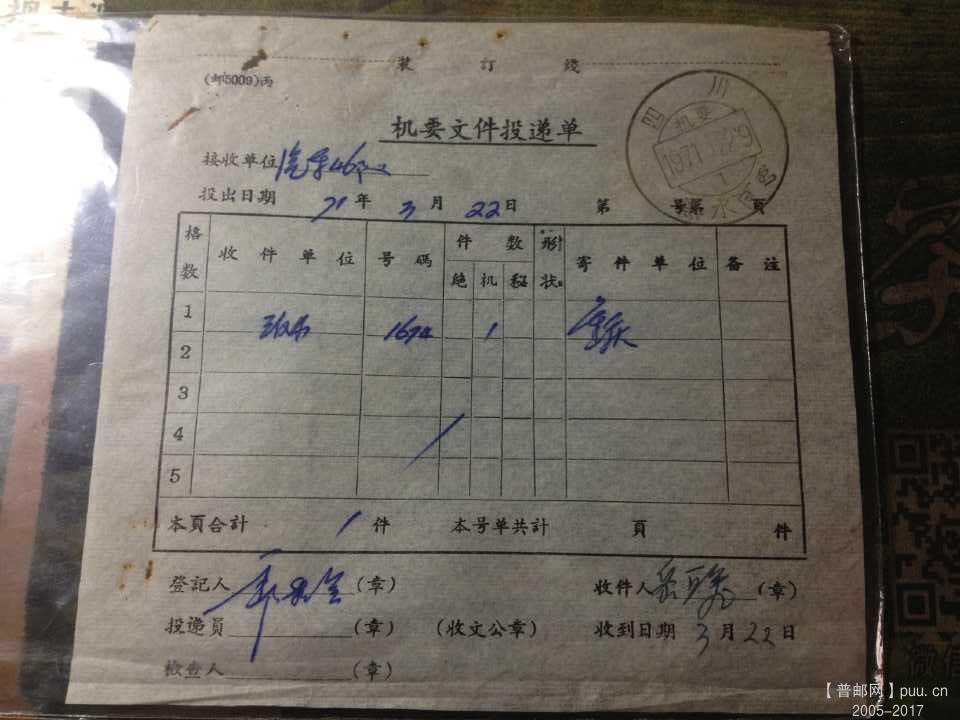 装 订 线
(邮5009)丙
机要文件投递单
四 川
机要
1971
永
接收单位 汽车46
投出日期 71 年 3 月 22 日 第 号第 頁
格数 收件单位 号碼 件数 形状 寄件单位 备注
絶 机 秘
1
1674 1 重庆
2
3
4
5
本頁合計 1 件 本号单共計 頁 件
登記人 (章) 收件人 (章)
投递员 (章) (收文公章) 收到日期 3月22日
檢查人 (章)
【普邮网】puu.cn
2005-2017
微信